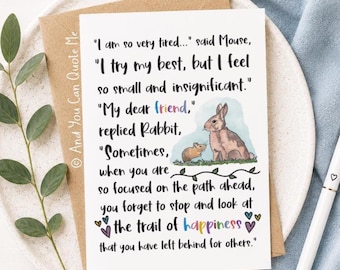 "I am so very tired..." said Mouse,
"I try my best, but I feel
so small and insignificant."
"My dear friend,"
replied Rabbit,
"Sometimes,
when you are
so focused on the path ahead,
you forget to stop and look at
the trail of happiness
that you have left behind for others."
© And You Can Quote Me